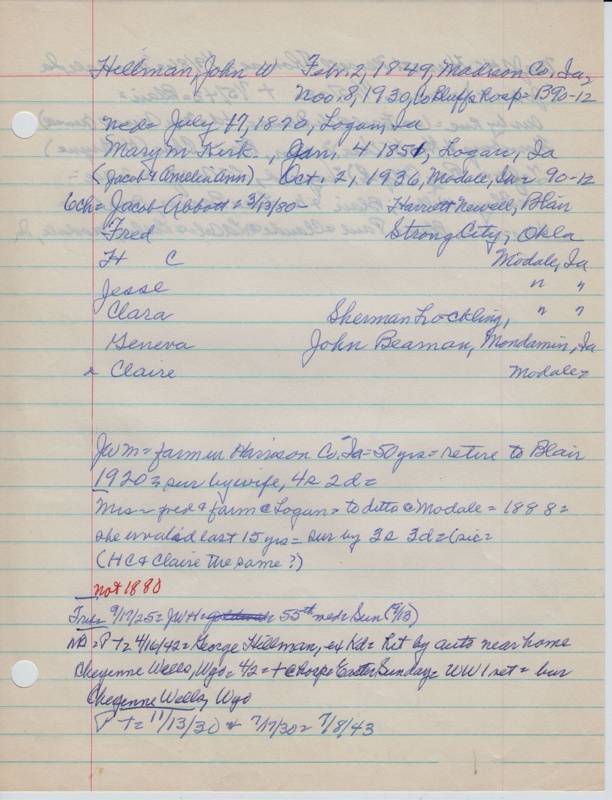 Hillman, John W Febr. 2, 1849, Madison Co. Ia,
Nov. 8, 1930, Co Bluffs Hosp = B90-12
Wed = July 17, 1870, Logan, Ia
Mary M Kirk., Jan. 4 1851, Logan, Ia
(Jacob & Amelia Ann) Oct. 2, 1936, Modale, Ia = 90-12
6ch = Jacob Abbott = 3/13/80 - Harriett Newell, Blair
Fred Strong City, Okla
H C Modale, Ia
Jesse " "
Clara Sherman Lockling, " "
Geneva John Beaman, Mondamin, Ia
& Claire Modale =
JWM = farm in Harrison Co. Ia = 50 yrs = retire to Blair
1920 = sur by wife, 4s 2d =
Mrs = & farm @ Logan = to ditto @ Modale = 1888 =
she invalid last 15 yrs = sur by 3s 3d = (sic =
(HC & Claire the same?)
not 1880
Trib = 9/17/25 = JWH = 55th wed = Sun (9/13)
NB = P T = 4/16/42 = George Hillman, ex Kd = hit by auto near home
Cheyenne Wells, Wyo = 42 = + @ hosp = Easter Sunday = WW 1 vet = bur
Cheyenne Wells, Wyo
P T = 11/13/30 & 7/17/30 = 7/8/43